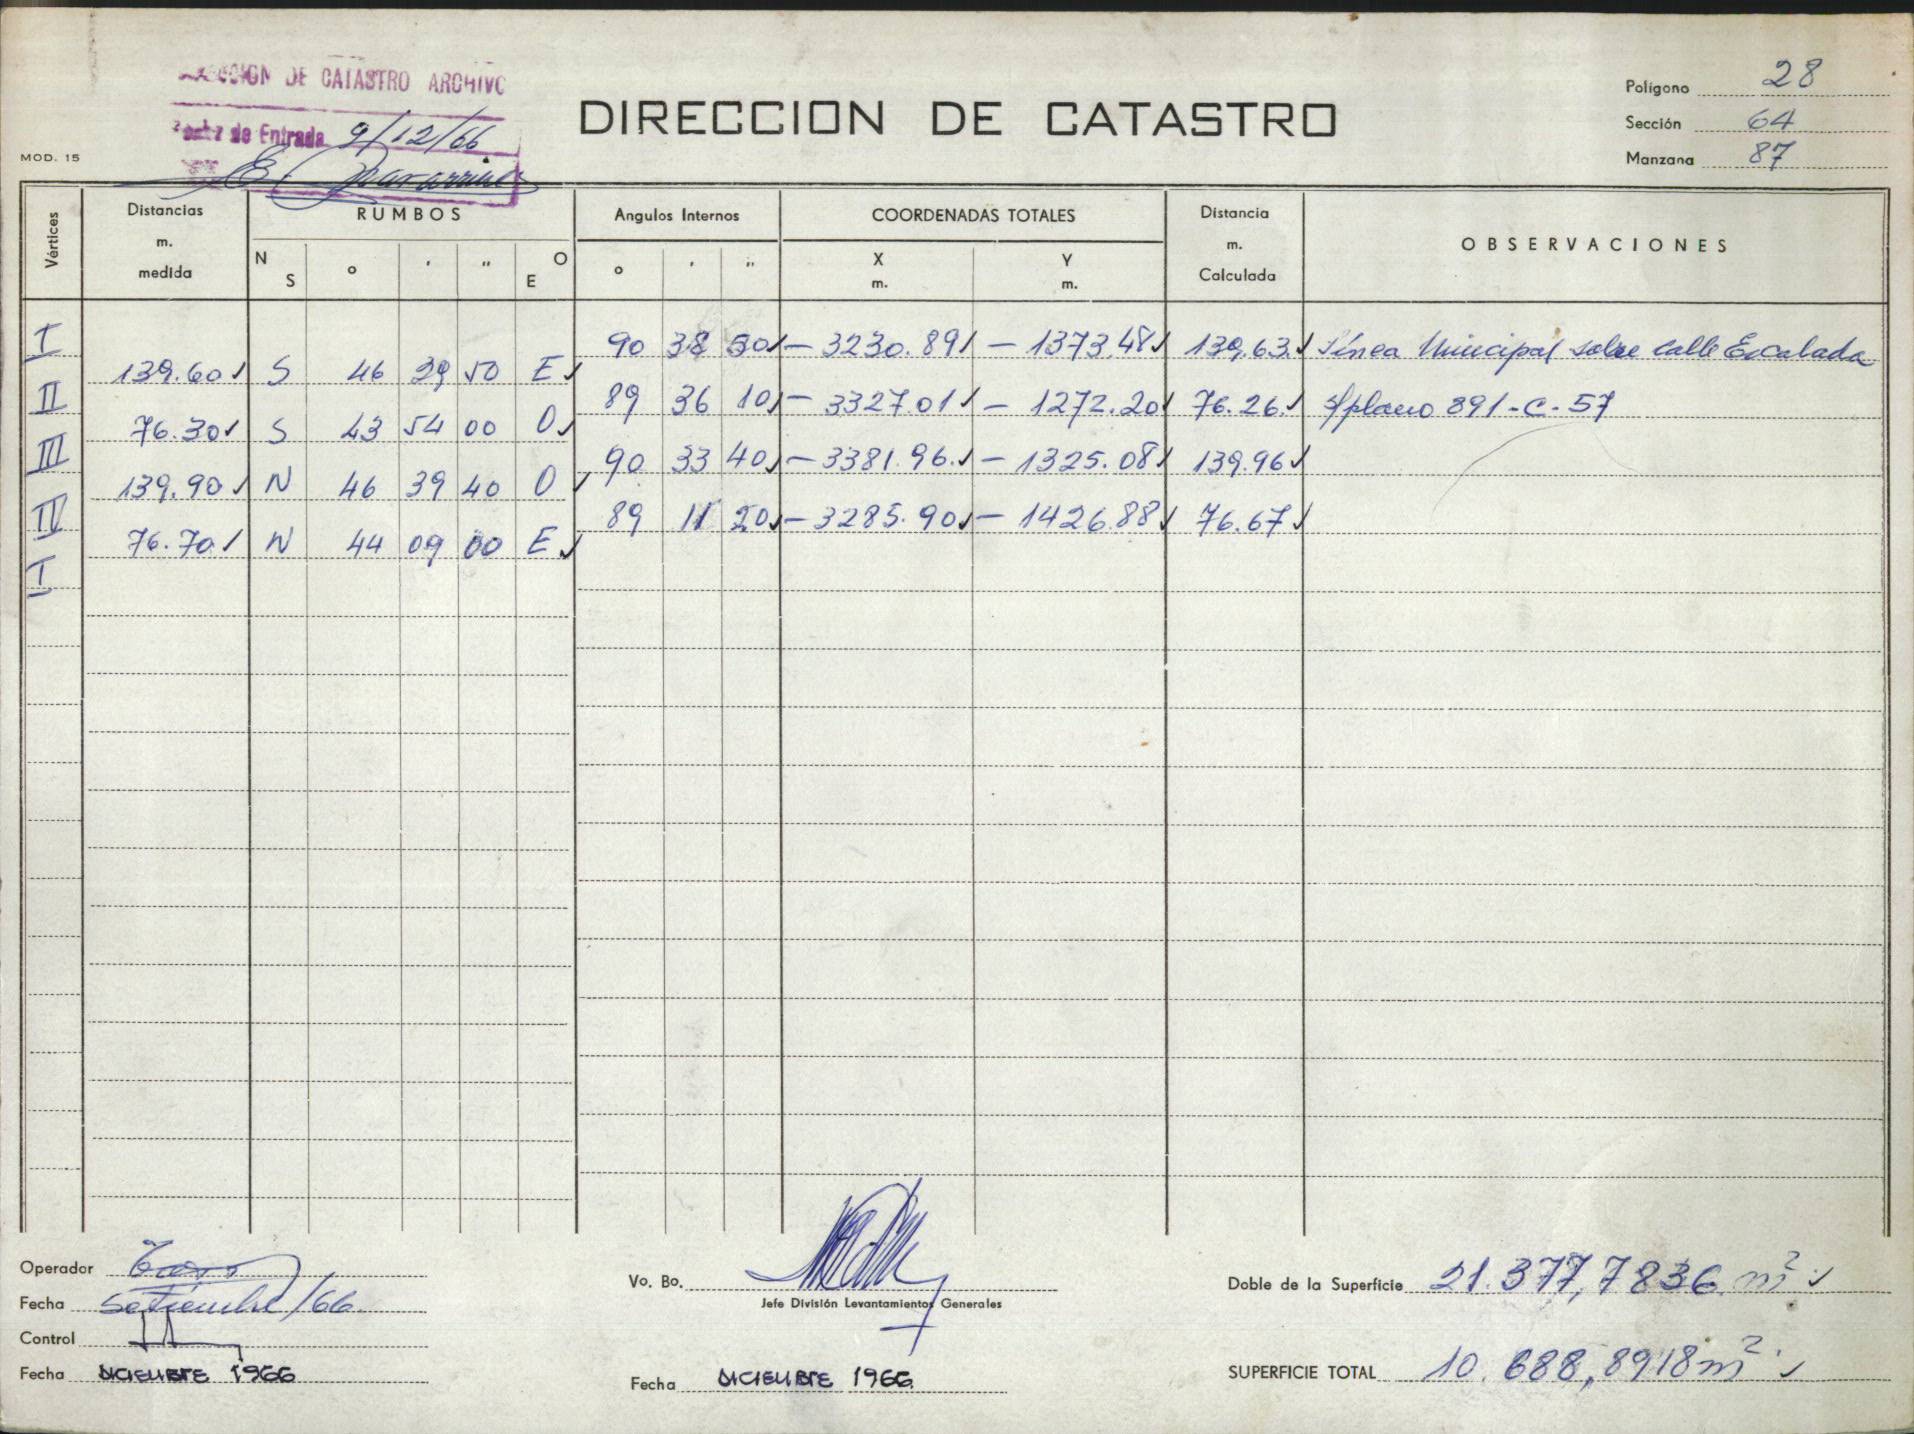 DE CATASTRO ARCHIVO
de Entrada 9/12/66
MOD. 15
DIRECCION DE CATASTRO
Polígono 28
Sección 64
Manzana 87
Vértices
Distancias m. medida
RUMBOS
N S o ' " O E
Angulos Internos
o ' "
COORDENADAS TOTALES
X m. Y m.
Distancia m. Calculada
OBSERVACIONES
I 90 38 50 - 3230.89 - 1373.48 139.63 Línea Municipal sobre calle Escalada
139.60 S 46 29 50 E
II 89 36 10 - 3327.01 - 1272.20 76.26 s/plano 891-C-57
76.30 S 43 54 00 O
III 90 33 40 - 3381.96 - 1325.08 139.96
139.90 N 46 39 40 O
IV 89 11 20 - 3285.90 - 1426.88 76.67
76.70 N 44 09 00 E
I
Operador
Fecha Setiembre/66
Control
Fecha DICIEMBRE 1966
Vo. Bo.
Jefe División Levantamientos Generales
Fecha DICIEMBRE 1966
Doble de la Superficie 21.377,7836 m²
SUPERFICIE TOTAL 10.688,8918 m²